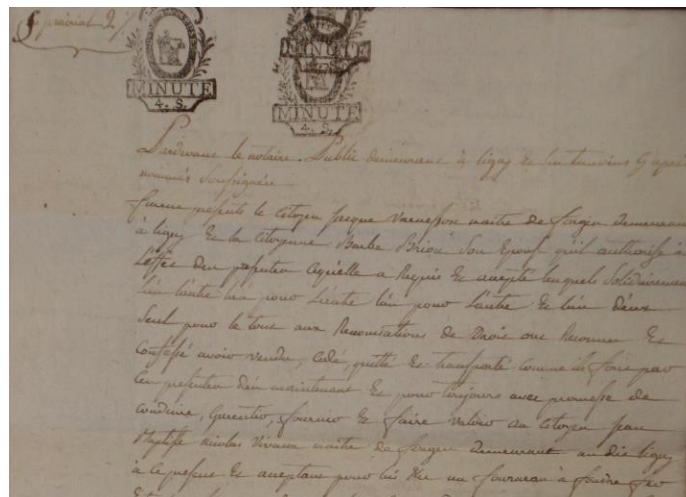 5 prairial 2
MINUTE
4. S.
MINUTE
MINUTE
4. S.
Pardevant le notaire Public demeurant à ligny et les temoins cy après
nommés soussignés
furent présents le citoyen Varnesson maitre de forges demeurant
à ligny et la citoyenne Barbe son Epouse qu'il authorise à
L'effet des présentes Lesquelle a Requis et accepté lesquels solidairement
L'un pour L'autre et L'un deux
seul pour le tout aux Renonciations de Droit ont Reconnu et
confessé avoir vendu, cedé, quitté et transporté comme ils font par
ces presentes dès maintenant et pour toujours avec promesse de
conduire, Garentir, fournir et faire valoir au citoyen jean
Baptiste nicolas Vivaux maitre de forges demeurant au dit ligny
à ce present et acceptant pour lui un fourneau à fondre fer